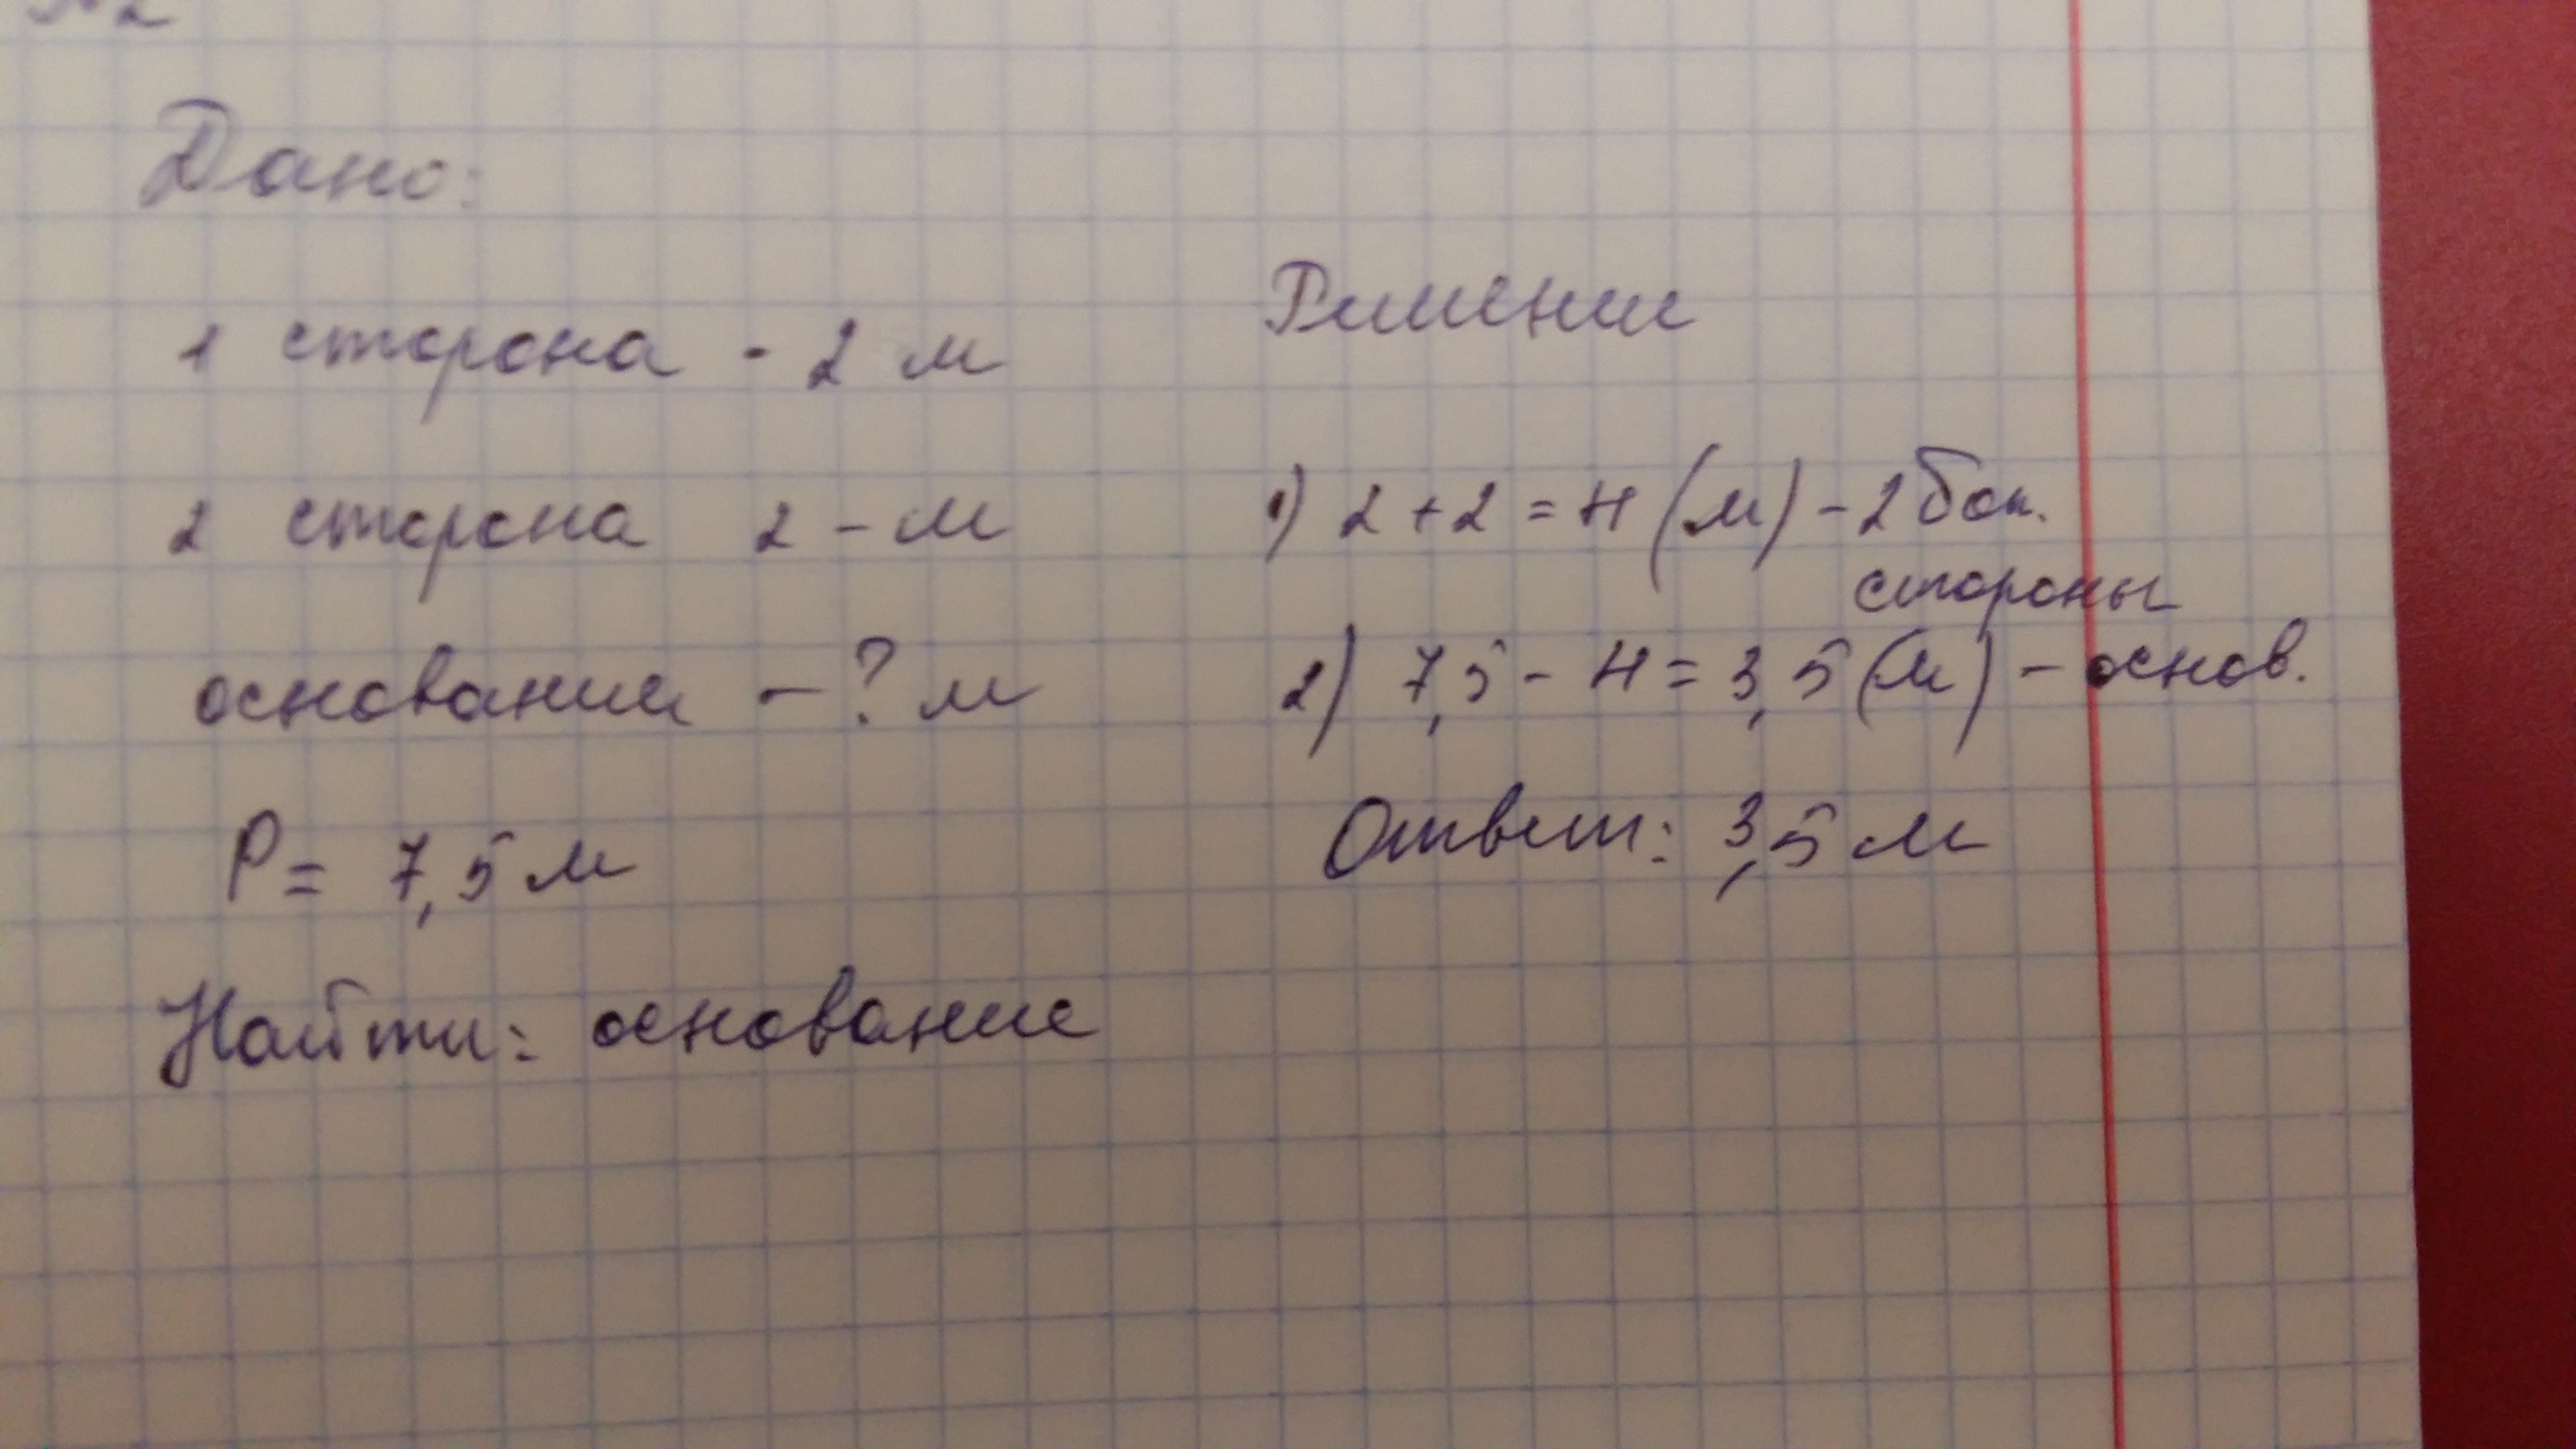 №2
Дано:
1 сторона - 2 м
2 сторона 2 - м
основание - ? м
P = 7,5 м
Найти: основание
Решение
1) 2 + 2 = 4 (м) - 2 бок.
стороны
2) 7,5 - 4 = 3,5 (м) - основ.
Ответ: 3,5 м